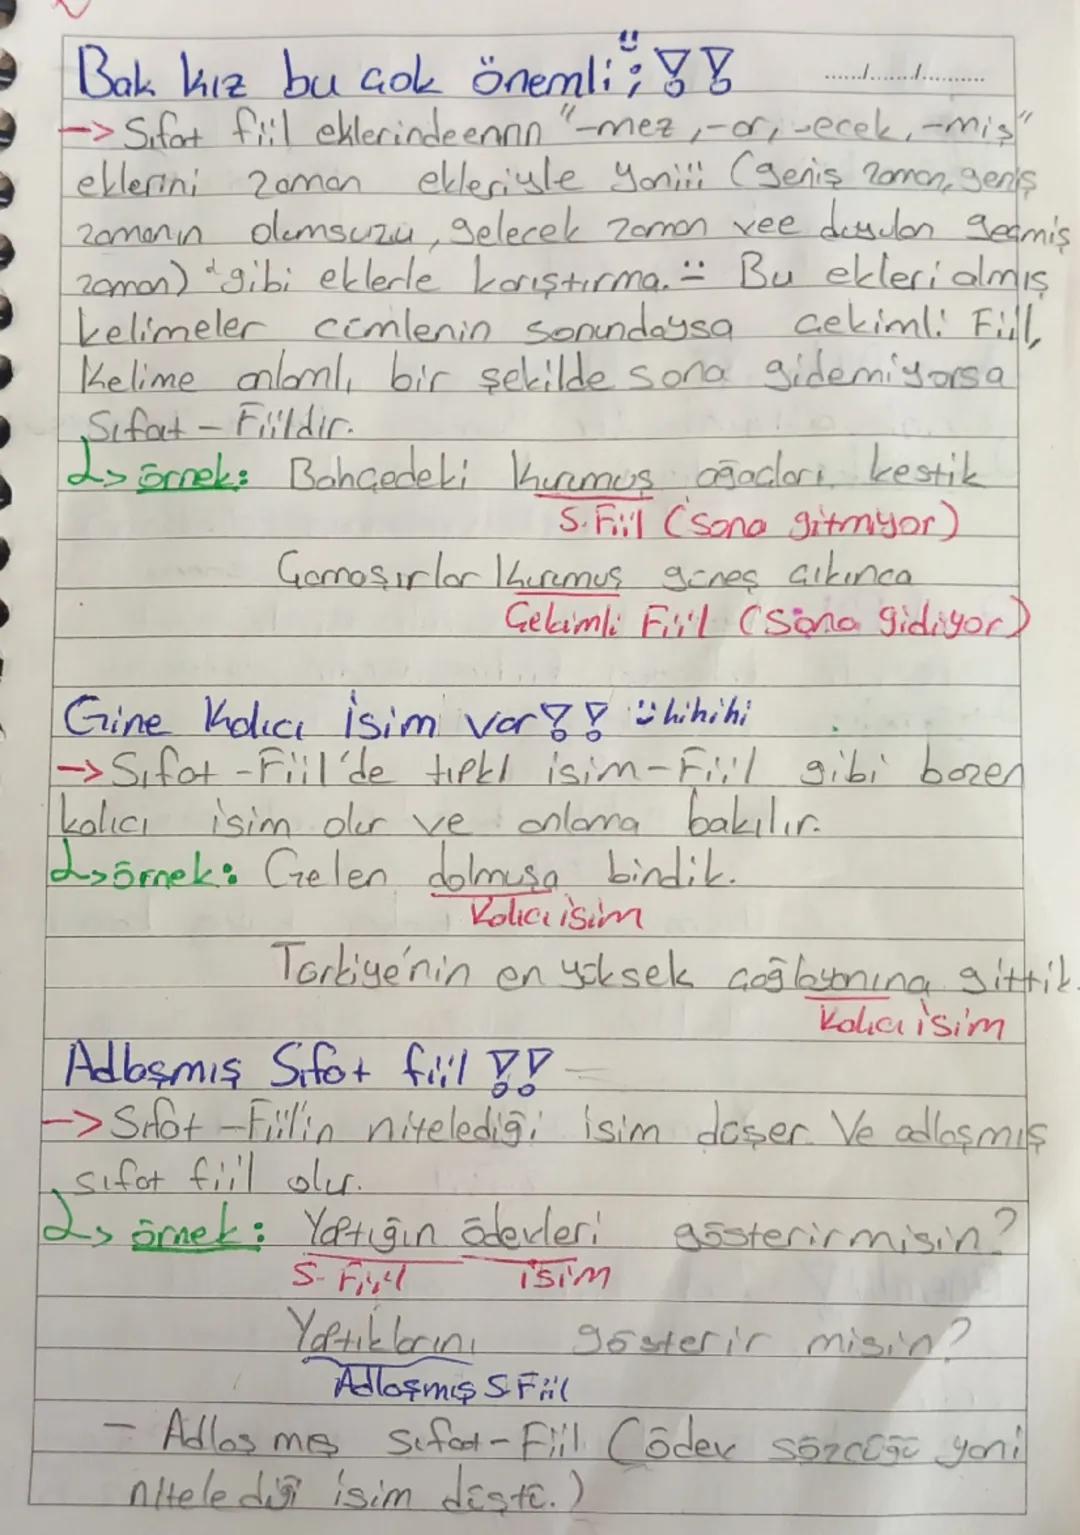 Bak kız bu çok önemli; !!
....../....../..........
-> Sıfat fiil eklerindeennn "-mez, -ar, -ecek, -miş"
eklerini zaman ekleriyle yaniii (geniş zaman, geniş
zamanın olumsuzu, gelecek zaman vee duyulan geçmiş
zaman) gibi eklerle karıştırma. Bu ekleri almış
kelimeler cümlenin sonundaysa çekimli Fiil,
Kelime anlamlı bir şekilde sona gidemiyorsa
Sıfat - Fiildir.
örnek: Bahçedeki kurumuş ağaçları kestik
S. Fiil (sona gitmiyor)
Çamaşırlar kurumuş güneş çıkınca
Çekimli Fiil (Sona gidiyor)
Gine Kalıcı isim var!! hihihi
-> Sıfat - Fiil'de tıpkı isim-Fiil gibi bazen
kalıcı isim olur ve anlama bakılır.
örnek: Gelen dolmuşa bindik.
Kalıcı isim
Türkiye'nin en yüksek çağlayanına gittik.
Kalıcı isim
Adlaşmış Sıfat fiil !!
-> Sıfat - Fiil'in nitelediği isim düşer. Ve adlaşmış
sıfat fiil olur.
örnek: Yaptığın ödevleri gösterirmisin?
S- Fiil isim
Yaptıklarını gösterir misin?
Adlaşmış S. Fiil
- Adlaşmış Sıfat - Fiil (ödev sözcüğü yani
nitelediği isim düştü.)